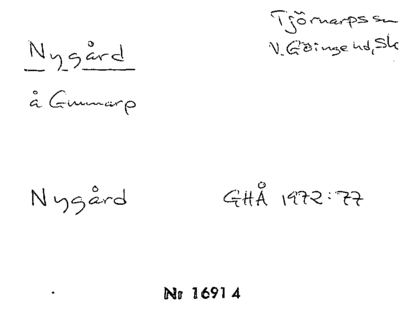 Nygård
Tjörnarps sn
V. Göinge hd, Sk
å Gummarp
Nygård GHÅ 1972:77
Nr 16914